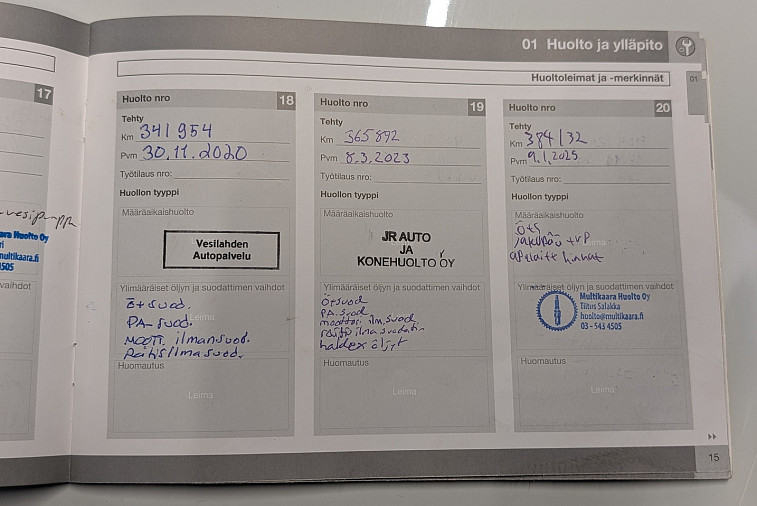 01 Huolto ja ylläpito
Huoltoleimat ja -merkinnät
01
17
vesipumppu
ara Huolto Oy
multikaara.fi
4505
vaihdot
Huolto nro 18
Tehty
Km 341 954
Pvm 30.11.2020
Työtilaus nro:
Huollon tyyppi
Määräaikaishuolto
Vesilahden
Autopalvelu
Ylimääräiset öljyn ja suodattimen vaihdot
ö+suod.
PA-suod.
Leima
moott. ilmansuod.
Raitisilmasuod.
Huomautus
Leima
Huolto nro 19
Tehty
Km 365 892
Pvm 8.3.2023
Työtilaus nro:
Huollon tyyppi
Määräaikaishuolto
JR AUTO
JA
KONEHUOLTO OY
Ylimääräiset öljyn ja suodattimen vaihdot
ö+suod
PA.suod
moottori ilm.suod
haldex öljyt
Huomautus
Leima
Huolto nro 20
Tehty
Km 384132
Pvm 9.1.2025
Työtilaus nro:
Huollon tyyppi
Määräaikaishuolto
ö+s
jakopää +vp
apulaite hihnat
Ylimääräiset öljyn ja suodattimen vaihdot
Multikaara Huolto Oy
Tiitus Salakka
huolto@multikaara.fi
03 - 543 4505
Huomautus
Leima
15